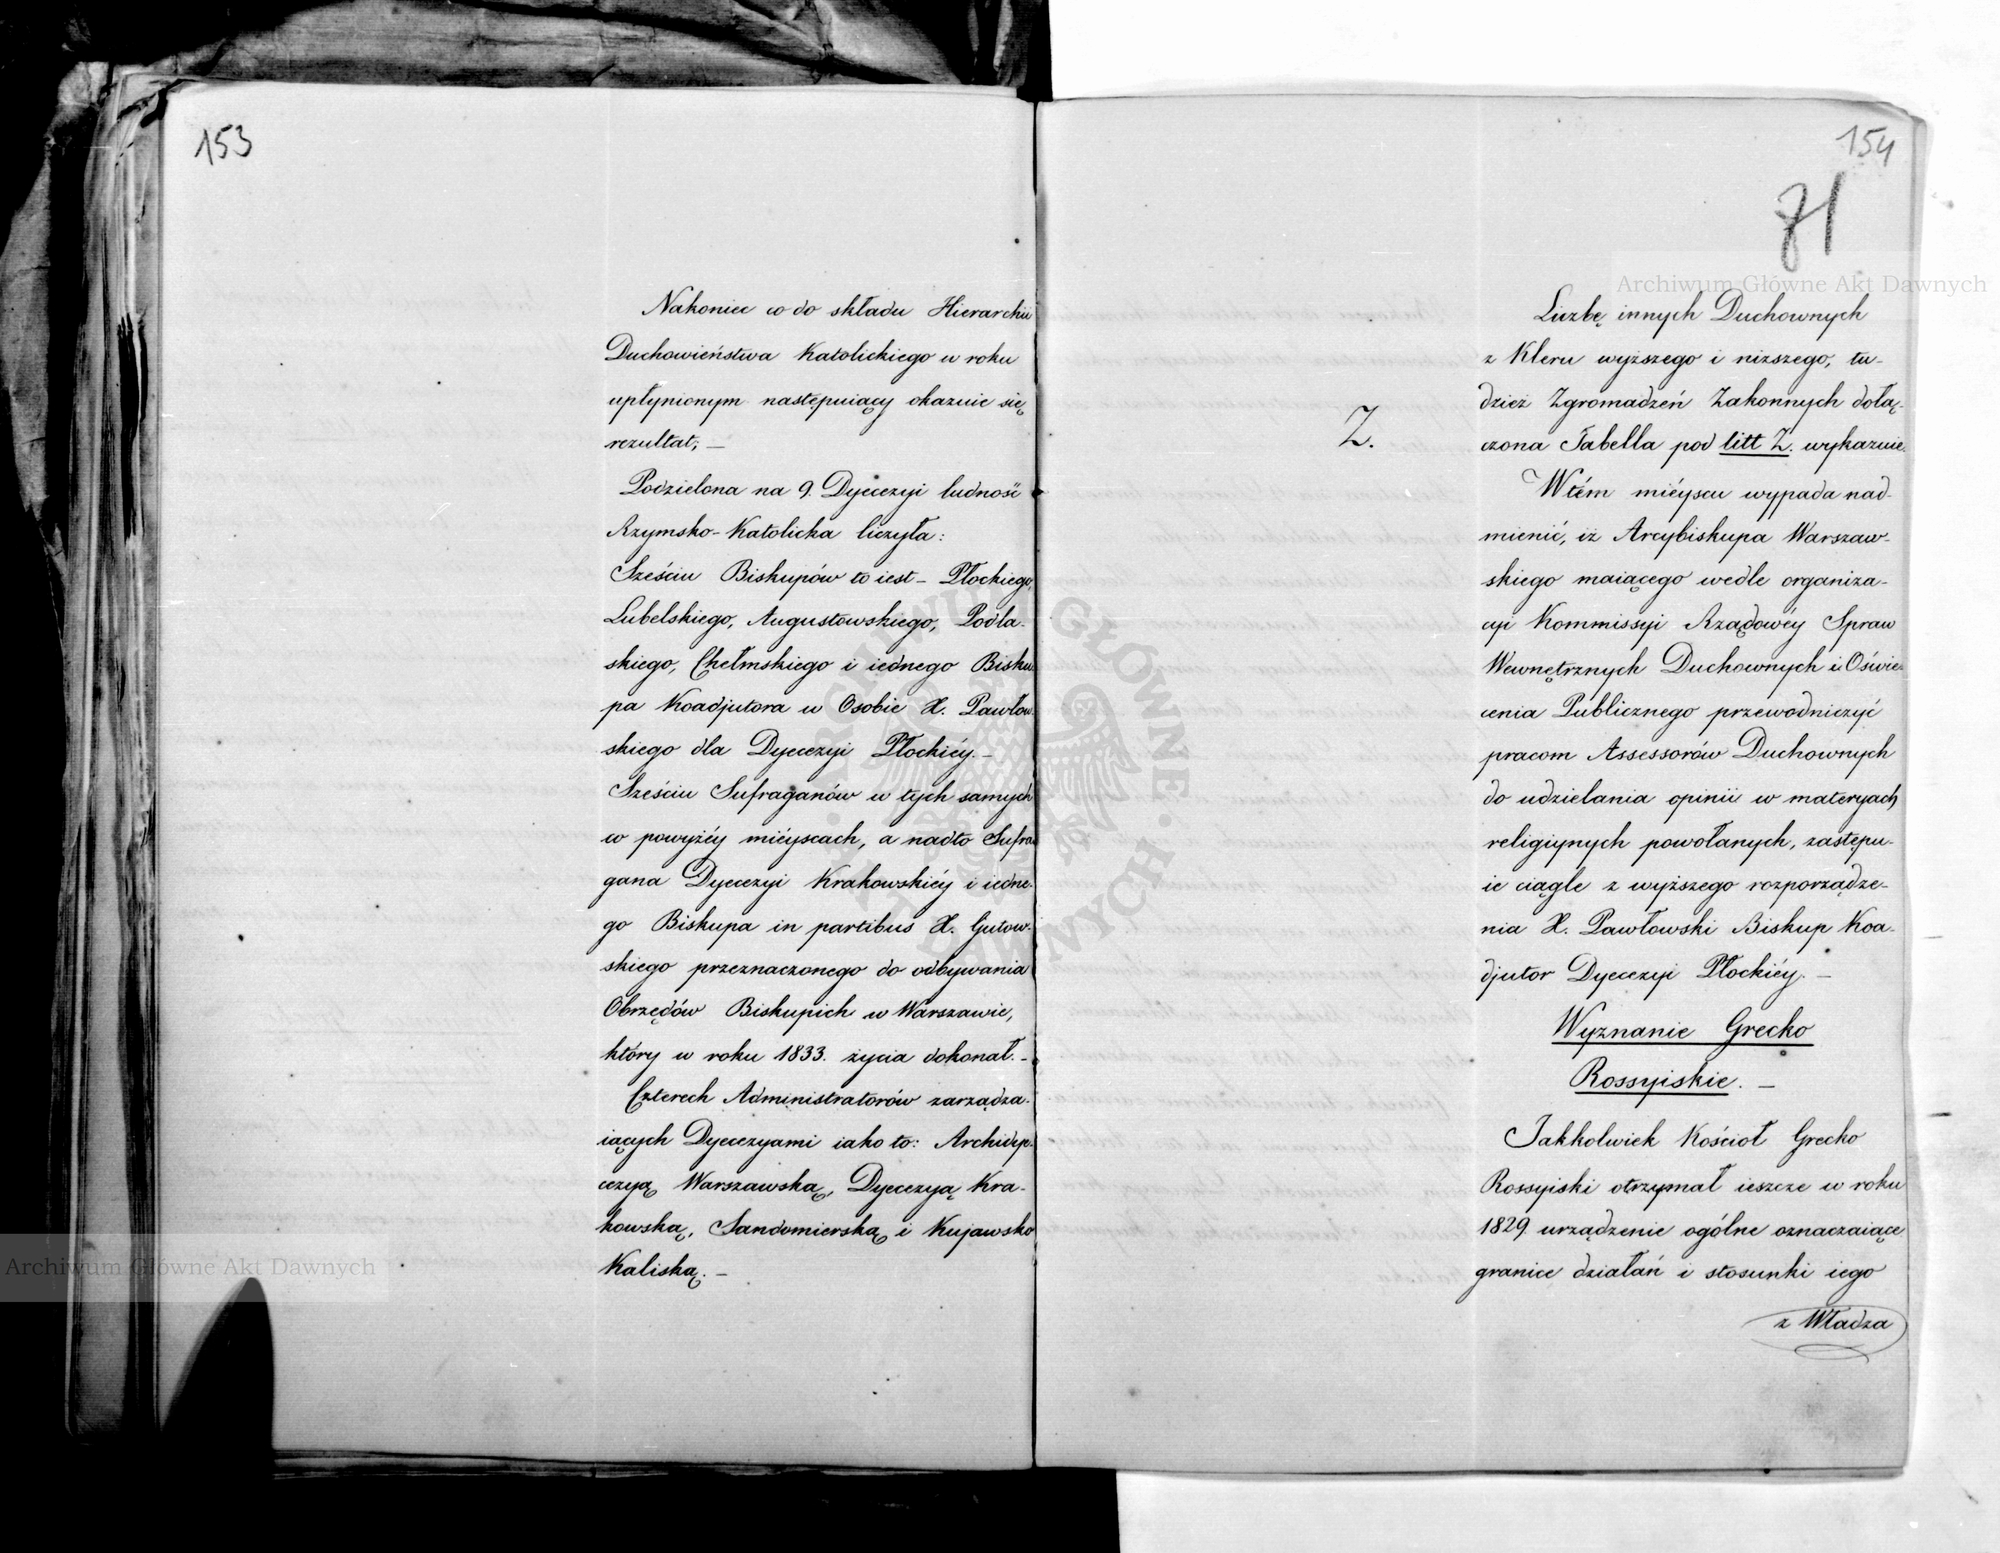 153
Nakoniec co do składu Hierarchii
Duchowieństwa Katolickiego w roku
upłynionym następuiący okazuie się
rezultat, —
Podzielona na 9. Dyecezyi ludność
Rzymsko-Katolicka liczyła:
Sześciu Biskupów to iest – Płockiego,
Lubelskiego, Augustowskiego, Podla-
skiego, Chełmskiego i iednego Bisku
pa Koadjutora w Osobie X. Pawłow.
skiego dla Dyecezyi Płockiéy. –
Sześciu Sufraganów w tych samych
co powyżéy mieyscach, a nadto Sufra
gana Dyecezyi Krakowskiéy i iedne-
go Biskupa in partibus X. Gutow-
skiego przeznaczonego do odbywania
Obrzędów Biskupich w Warszawie,
który w roku 1833. życia dokonał. –
Czterech Administratorów zarządza-
iących Dyecezyami iako to: Archidye-
cezyą Warszawską, Dyecezyą Kra-
kowską, Sandomierską i Kujawsko
Kaliską. –
154
71
Liczbę innych Duchownych
z Kleru wyższego i niższego, tu-
dzież Zgromadzeń Zakonnych dołą-
czona Tabella pod litt Z. wykazuie.
Z.
W tém miéyscu wypada nad-
mienić, iż Arcybiskupa Warszaw-
skiego maiącego wedle organiza-
cyi Kommissyi Rządowéy Spraw
Wewnętrznych Duchownych i Oświe
cenia Publicznego przewodniczyć
pracom Assessorów Duchownych
do udzielania opinii w materyach
religiynych powołanych, zastępu-
ie ciągle z wyższego rozporządze-
nia X. Pawłowski Biskup Koa-
djutor Dyecezyi Płockiéy. —
Wyznanie Grecko
Rossyiskie. —
Jakkolwiek Kościoł Grecko
Rossyiski otrzymał ieszcze w roku
1829 urządzenie ogólne oznaczaiące
granice działań i stosunki iego
z Władza
Archiwum Główne Akt Dawnych
Archiwum Główne Akt Dawnych